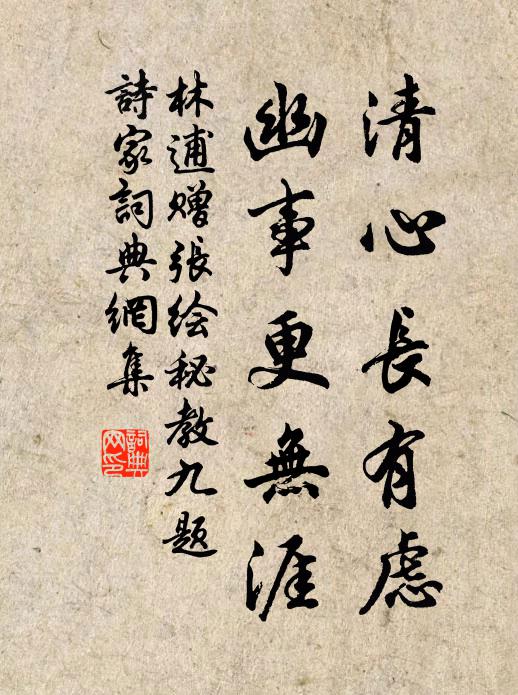 清心長有慮
幽事更無涯
林逋贈張绘秘教九题
詩家詞典網集
詞典
网印